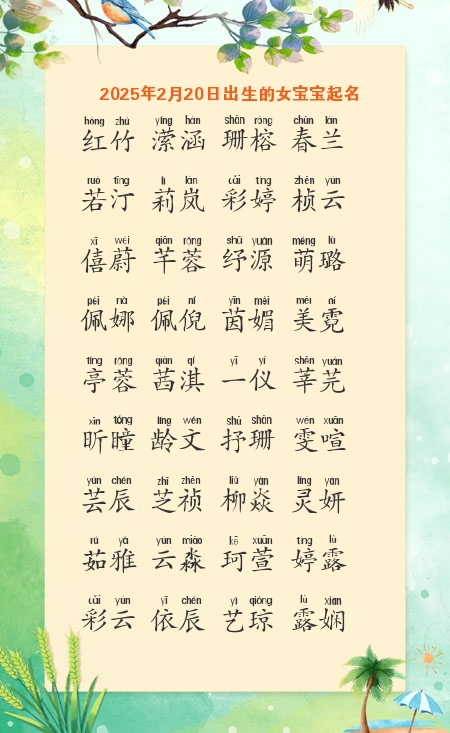 2025年2月20日出生的女宝宝起名
hóng zhú yíng hán shān róng chūn lán
红竹 潆涵 珊榕 春兰
ruò tīng lì lán cǎi tíng zhēn yún
若汀 莉岚 彩婷 桢云
xī wèi qiān róng shū yuán méng lù
僖蔚 芊蓉 纾源 萌璐
pèi nà pèi ní yīn mèi měi ní
佩娜 佩倪 茵媚 美霓
tíng róng qiàn qí yī yí shēn yuán
亭蓉 茜淇 一仪 莘芫
xīn tóng líng wén shū shān wén xuān
昕瞳 龄文 抒珊 雯喧
yún chén zhī zhēn liǔ yàn líng yán
芸辰 芝祯 柳焱 灵妍
rú yǎ yún miǎo kē xuān tíng lù
茹雅 云淼 珂萱 婷露
cǎi yún yī chén yì qióng lù xián
彩云 依辰 艺琼 露娴